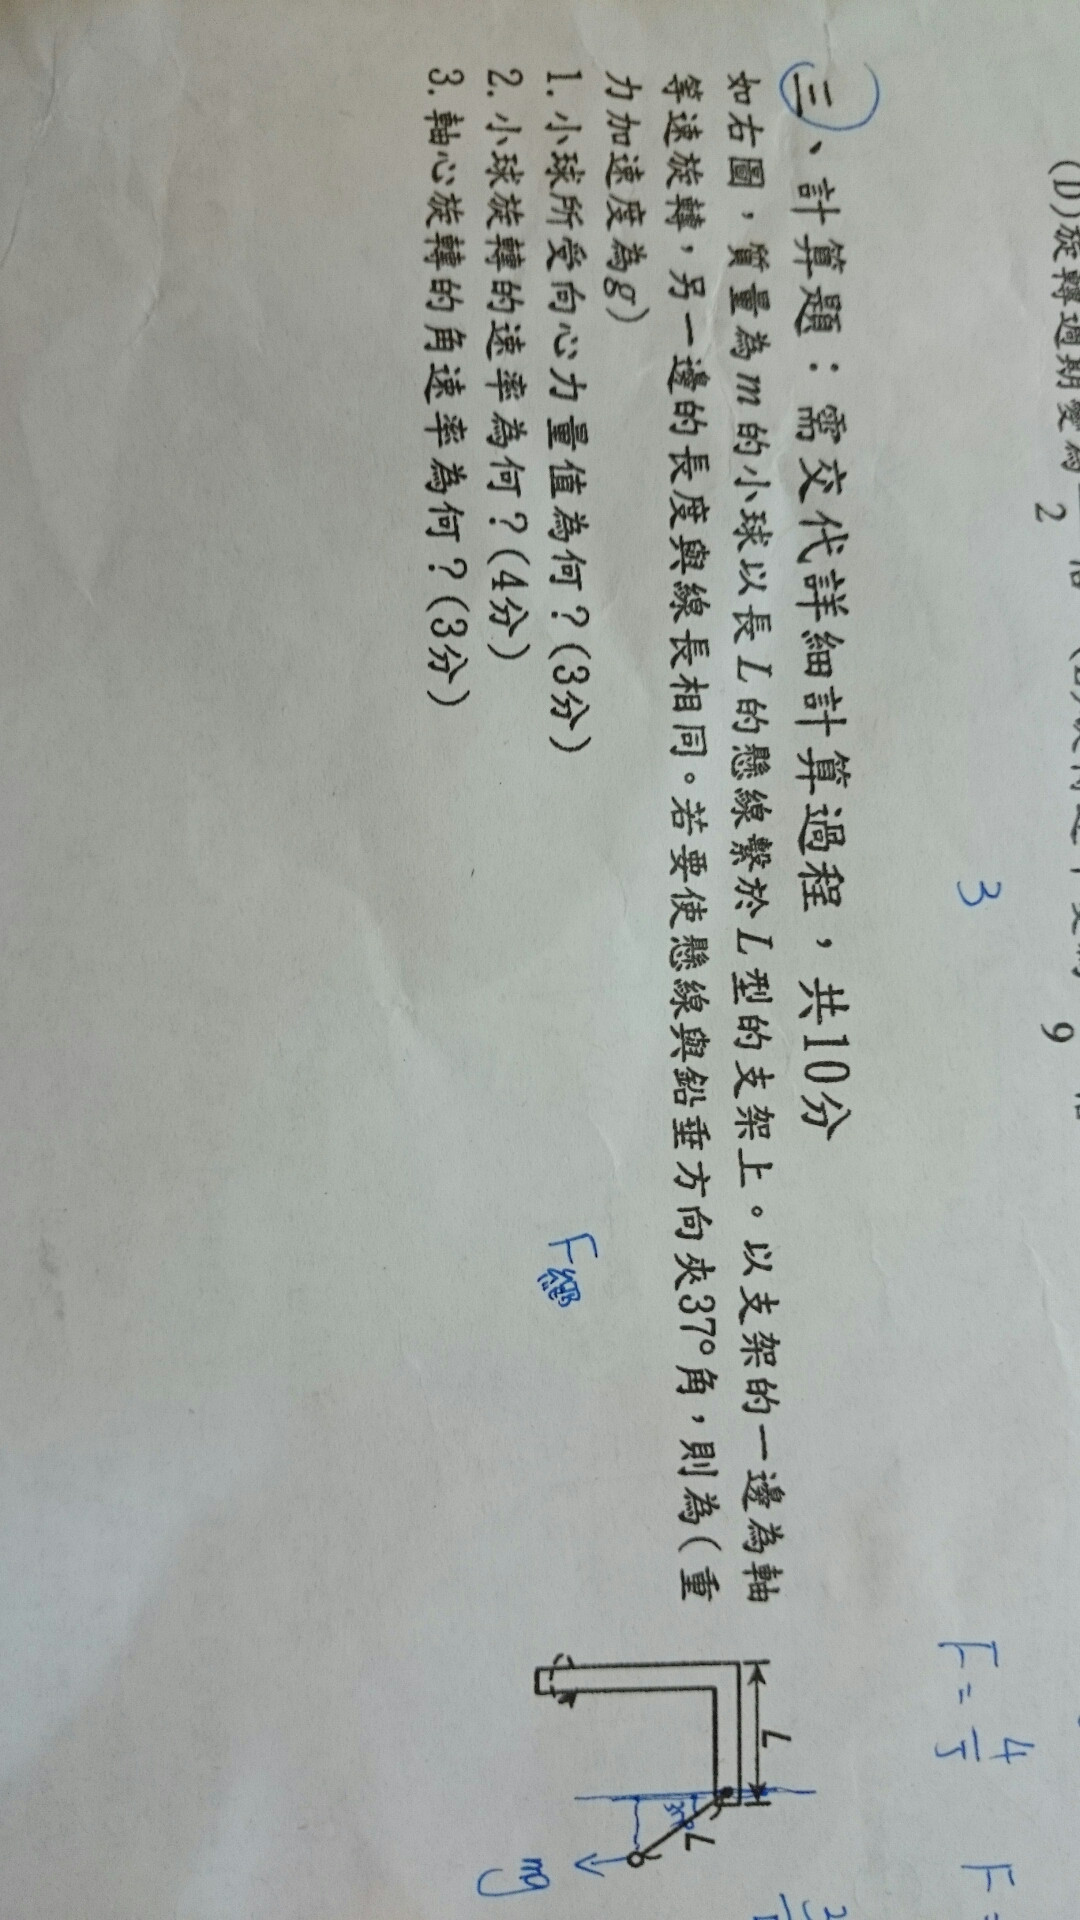 (D)旋轉週期變為
2
9
3
三、計算題：需交代詳細計算過程，共10分
如右圖，質量為m的小球以長L的懸線繫於L型的支架上。以支架的一邊為軸
等速旋轉，另一邊的長度與線長相同。若要使懸線與鉛垂方向夾37°角，則為(重
力加速度為g)
1.小球所受向心力量值為何？(3分)
2.小球旋轉的速率為何？(4分)
3.軸心旋轉的角速率為何？(3分)
F繩
F=4/5
F=
L
L
37°
mg